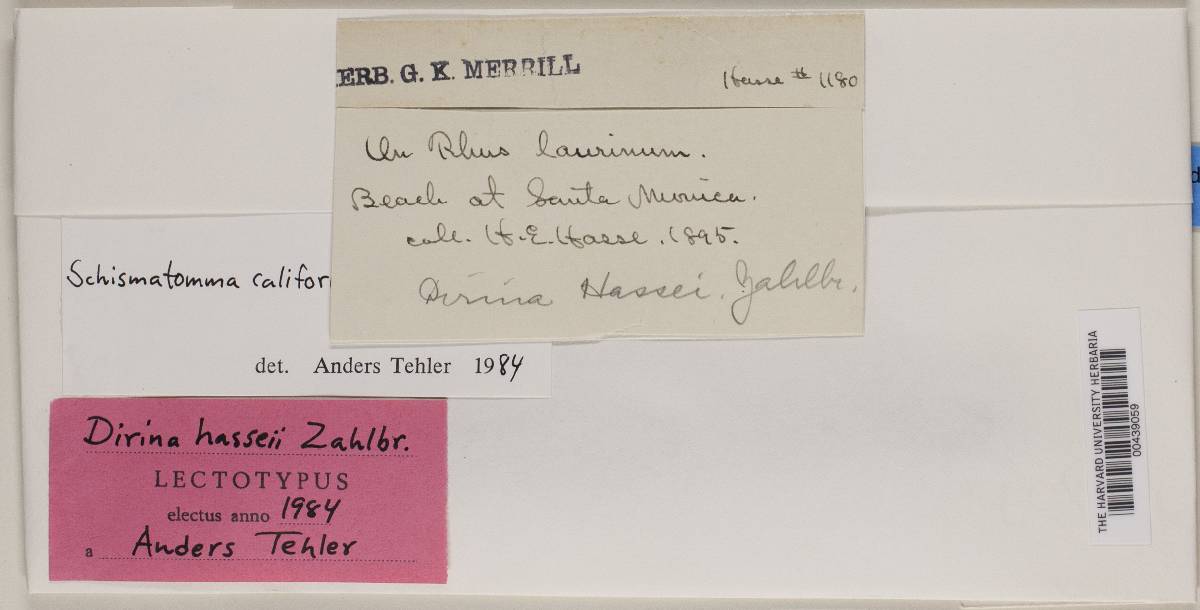 ERB. G. K. MERRILL
Hasse # 1180
On Rhus laurinum.
Beach at Santa Monica.
coll. H. E. Hasse. 1895.
Dirina Hassei. Zahlbr.
Schismatomma califor
det. Anders Tehler 1984
Dirina hasseii Zahlbr.
LECTOTYPUS
electus anno 1984
a Anders Tehler
THE HARVARD UNIVERSITY HERBARIA
00439059
d